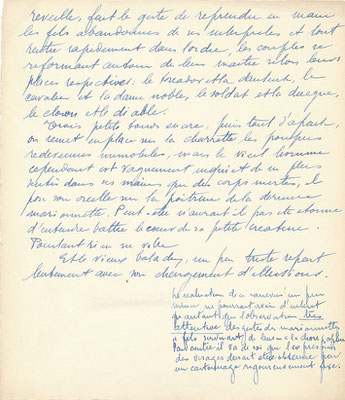 réveille, fait le geste de reprendre en main
les fils abandonnés de ses interprètes et tout
rentre rapidement dans l'ordre, les couples se
reformant autour de leur maître selon leurs
places respectives: le toréador et la danseuse, le
cavalier et la dame nobles, le soldat et la duègne,
le clown et le diable.
Trois petits tours encore, puis tout s'apaise
on remet en place sur la charrette les poupées
redevenues immobiles, mais le vieil homme
cependant est vaguement inquiet de ne plus
sentir dans ses mains que des corps inertes, il
pose son oreille sur la poitrine de la dernière
marionnette. Peut-être n'aurait-il pas été étonné
d'entendre battre le cœur de sa petite créature.
Pourtant rien ne vibre
Et le vieux baladin, un peu triste repart
lentement avec son chargement d'illusions.
La réalisation de ce canevas un peu
mince ne pourrait avoir d'intérêt
qu'autant que l'observation très
attentive des gestes des marionnettes
à fils
Par contre il va de soi que l'expression
des visages devrait être obtenue par
un cartonnage rigoureusement fixe.